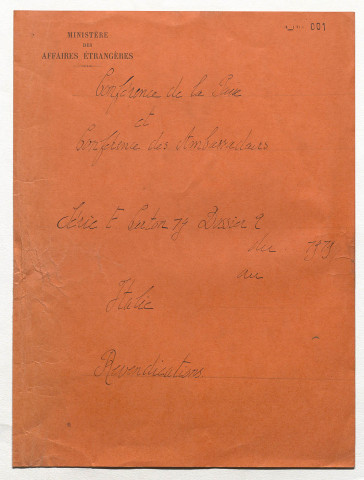 001
MINISTÈRE
DES
AFFAIRES ÉTRANGÈRES
Conférence de la Paix
et
Conférence des Ambassadeurs
Série E Carton 79 Dossier 2
du 1919
au
Italie
Revendications